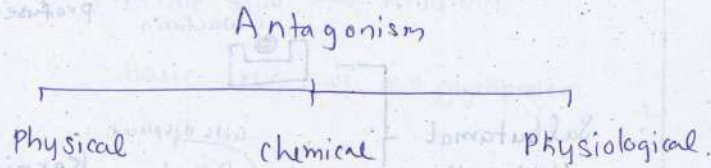 Antagonism
Physical chemical Physiological.